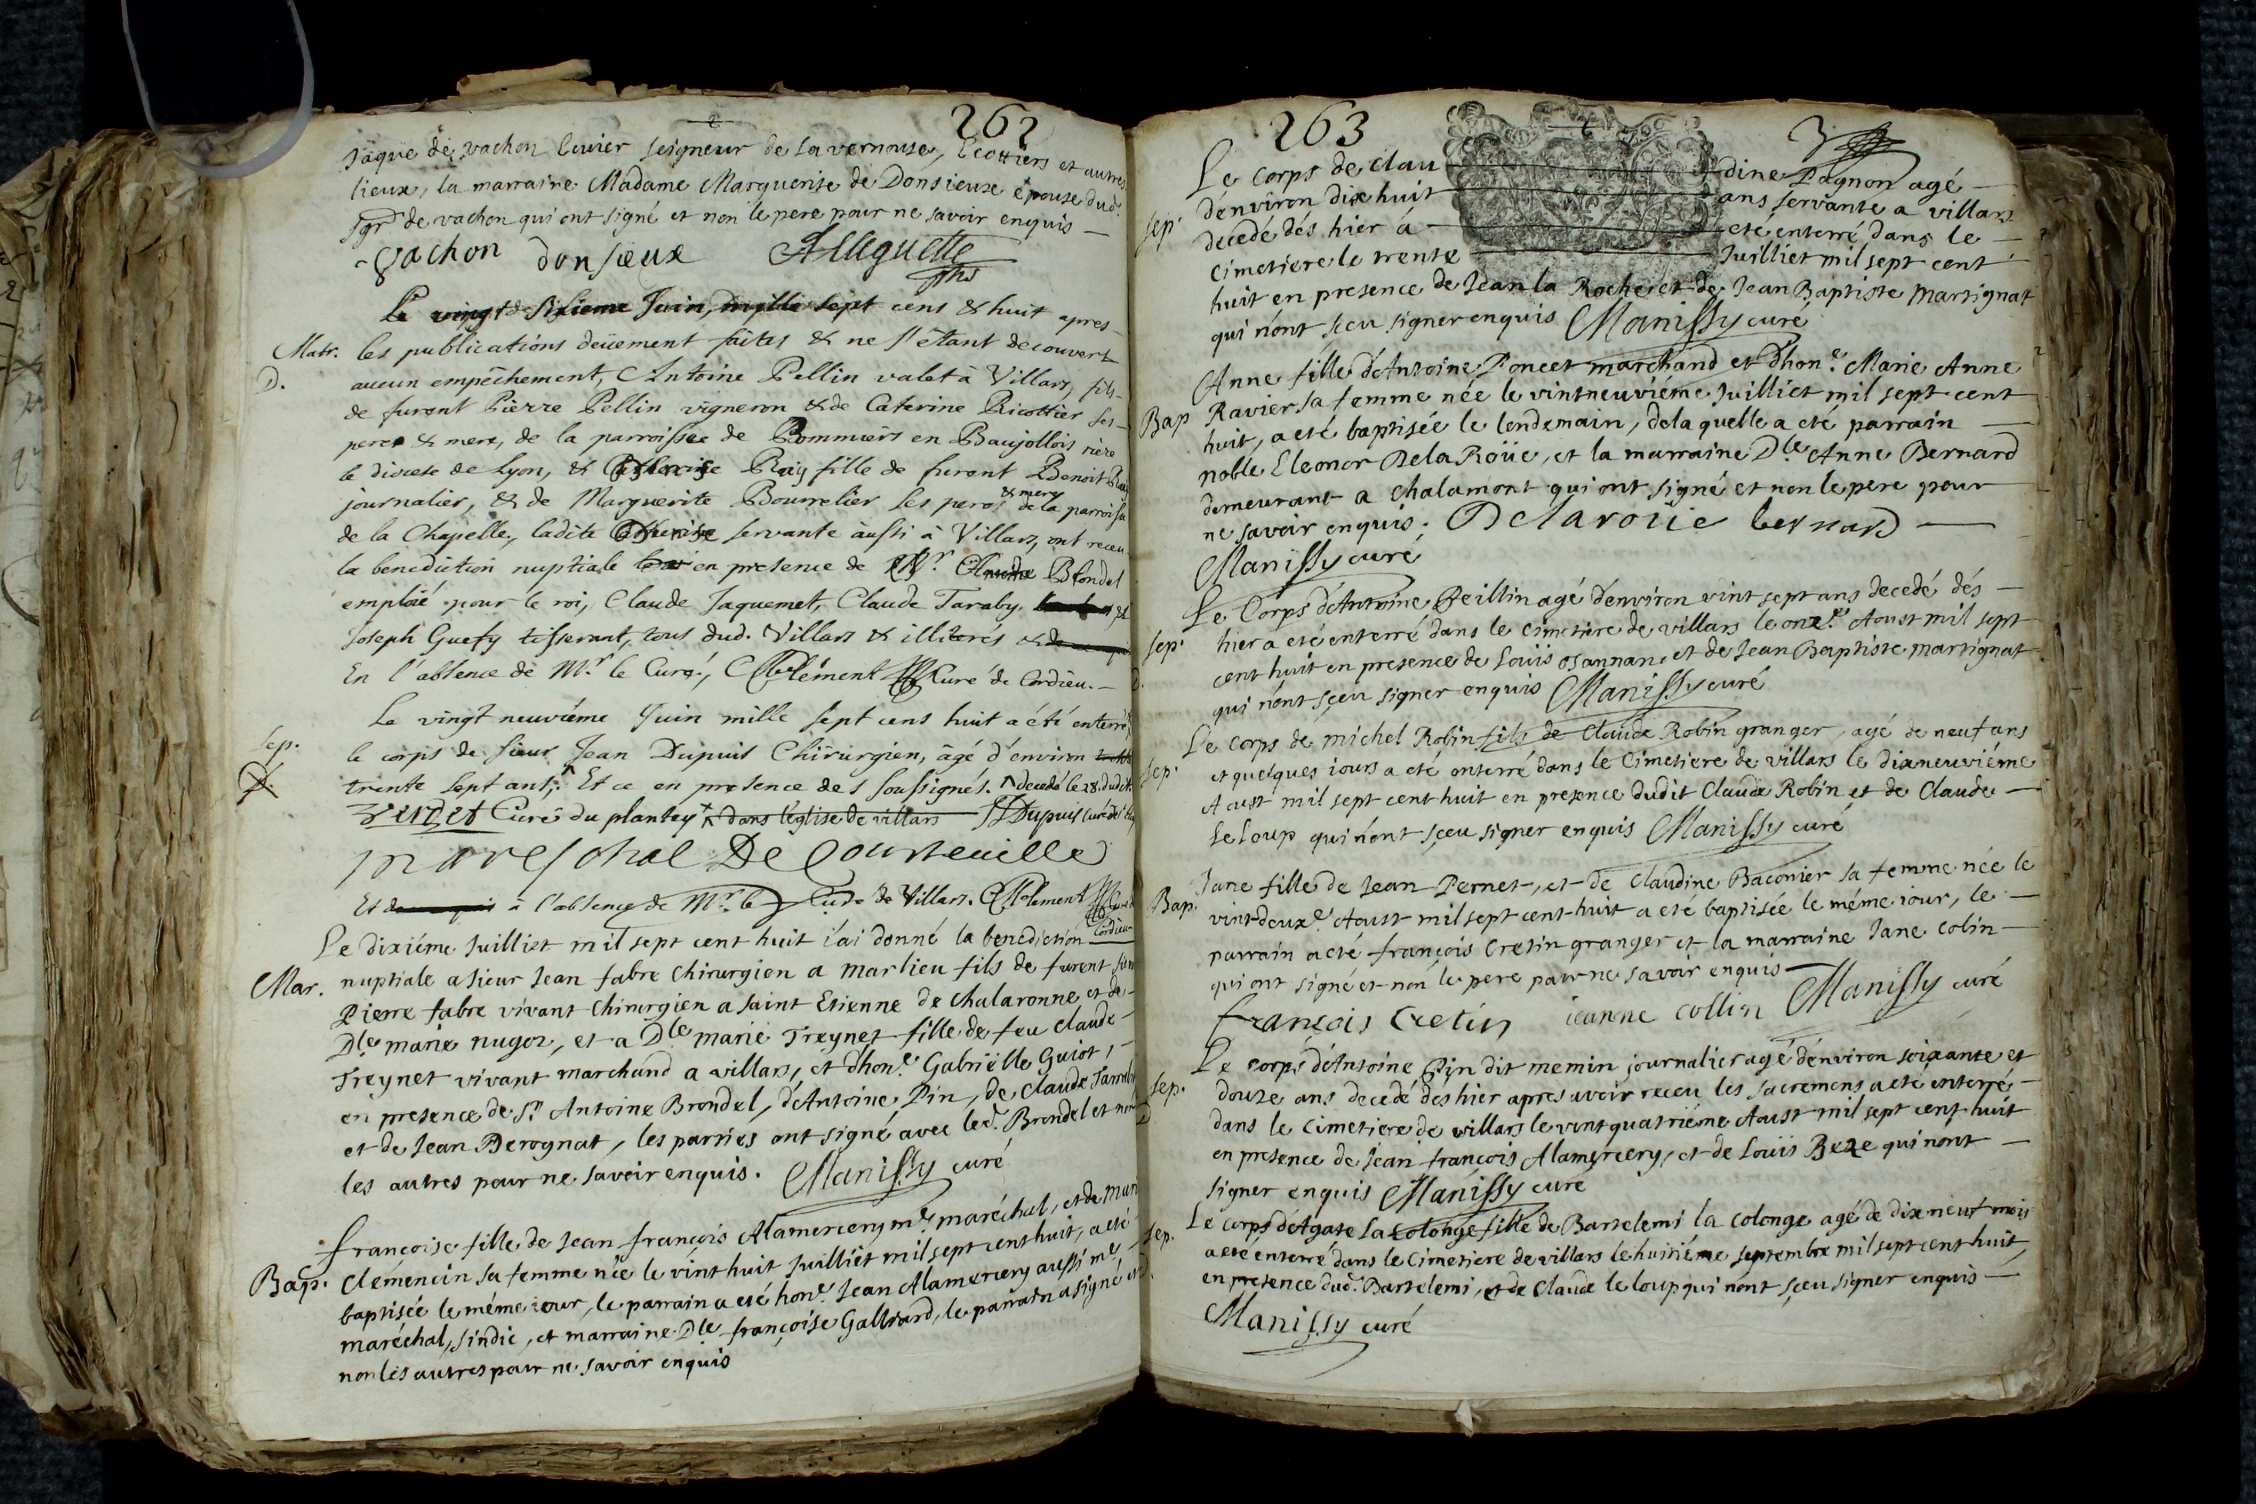 262
Jaque de vachon ecuier seigneur de la vernouse, Ecottiers et autres
lieux, la marraine Madame Marguerite de Donsieux épouse dud.
sgr de vachon qui ont signé et non le pere pour ne savoir enquis —
Vachon donsieux
Le vingt sixieme Juin, mille sept cens & huit apres
Mar. les publications deüement faites & ne s'étant decouvert
D. aucun empêchement, Antoine Pellin valet à Villars, fils
de furent Pierre Pellin vigneron & de Caterine Ricottier ses
peres & mere, de la parroisse de Pommiers en Baujollois riere
le diocese de Lyon, & Roy fille de furent Benoit Roy
journalier, & de Marguerite Bourrelier ses peres & mere de la parroisse
de la Chapelle, ladite servante aussi à Villars, ont receu
la benediction nuptiale en presence de Mr. Blondel
emploié pour le roi, Claude Jaquemet, Claude Taraby &
Joseph Guefy tisserant, tous dud. Villars & illiterés
En l'absence de Mr. le Curé, Clément Curé de Cordieu. —
Le vingt neuviéme Juin mille sept cens huit a été enterré
Sep. le corps de sieur Jean Dupuis Chirurgien, âgé d'environ
D. trente sept ans, ^ Et ce en presence des soussignés. ^ decedé le 28. dudit.
Verdet Curé du plantay ^ dans l'église de villars JDupuis curé de
mareschal De Courteville
Et à l'absence de Mr. le Curé de Villars. Clement Curé de Cordieu
Le dixiéme Juilliet mil sept cent huit j'ai donné la benediction
Mar. nuptiale a sieur Jean fabre chirurgien a marlieu fils de furent sieur
Pierre fabre vivant chirurgien a saint Etienne de chalaronne et de
Dle marie nugoz, et a Dle marie Treynet fille de feu claude
Treynet vivant marchand a villars, et d'hone. Gabriëlle Guiot,
en presence de Sr. Antoine Brondel, d'Antoine Pin, de claude
et de Jean Derognat, les parties ont signé avec led. Brondel et non
les autres pour ne savoir enquis. Manissy curé
françoise fille de Jean françois Alamercery me. maréchal, et de
Bap. clémencin sa femme née le vint huit Juilliet mil sept cent huit, a eté
baptisée le méme iour, le parrain a eté hone. Jean Alamercery aussi me.
maréchal, sindic, et marraine Dle françoise Galliard, le parrain a signé et
non les autres pour ne savoir enquis
263
Le corps de claudine Pagnon agé —
d'environ dix huit ans servante a villars
sep. decedé dés hier a eté enterré dans le —
cimetiere le trente Juilliet mil sept cent
huit en presence de Jean la Roche et de Jean Baptiste Martignat
qui n'ont sçeu signer enquis Manissy curé
Anne fille d'Antoine Poncet marchand et d'hone. Marie Anne
Bap Ravier sa femme née le vintneuviéme Juilliet mil sept cent
huit, a eté baptisée le lendemain, de la quelle a eté parrain —
noble Eleonor De la Roüe, et la marraine Dle Anne Bernard
demeurant a chalamont qui ont signé et non le pere pour
ne savoir enquis. Delaroüe bernard —
Manissy curé
Le corps d'Antoine Peillin agé d'environ vint sept ans decedé dés —
sep. hier a eté enterré dans le cimetiere de villars le onze. Aoust mil sept
cent huit en presence de Loüis osannan, et de Jean Baptiste martignat
qui n'ont sçeu signer enquis Manissy curé
Le corps de michel Robin fils de Claude Robin granger, agé de neuf ans
sep. et quelques iours a eté enterré dans le cimetiere de villars le dixneuviéme
Aoust mil sept cent huit en presence dudit Claude Robin et de Claude —
Le Loup qui n'ont sçeu signer enquis Manissy curé
Jane fille de Jean Pernet, et de claudine Baconier sa femme née le
Bap. vint-deuxe. Aoust mil sept cent huit a eté baptisée le méme iour, le —
parrain a eté françois cretin granger et la marraine Jane colin —
qui ont signé et non le pere pour ne savoir enquis Manissy curé
françois Cretin jeanne collin
Le corps d'Antoine Pin dit memin journalier agé d'environ soixante et
sep. douze ans decedé des hier apres avoir receu les sacremens a eté enterré
dans le cimetiere de villars le vint quatriéme Aoust mil sept cent huit
en presence de Jean françois Alamercery, et de Loüis Beze qui n'ont —
signer enquis Manissy curé
Le corps d'Agate la colonge fille de Bartelemi la colonge agé de dixneuf mois
sep. a eté enterré dans le cimetiere de villars le huitiéme septembre mil sept cent huit,
en presence dud. Bartelemi, et de Claude le loup qui n'ont sçeu signer enquis —
Manissy curé